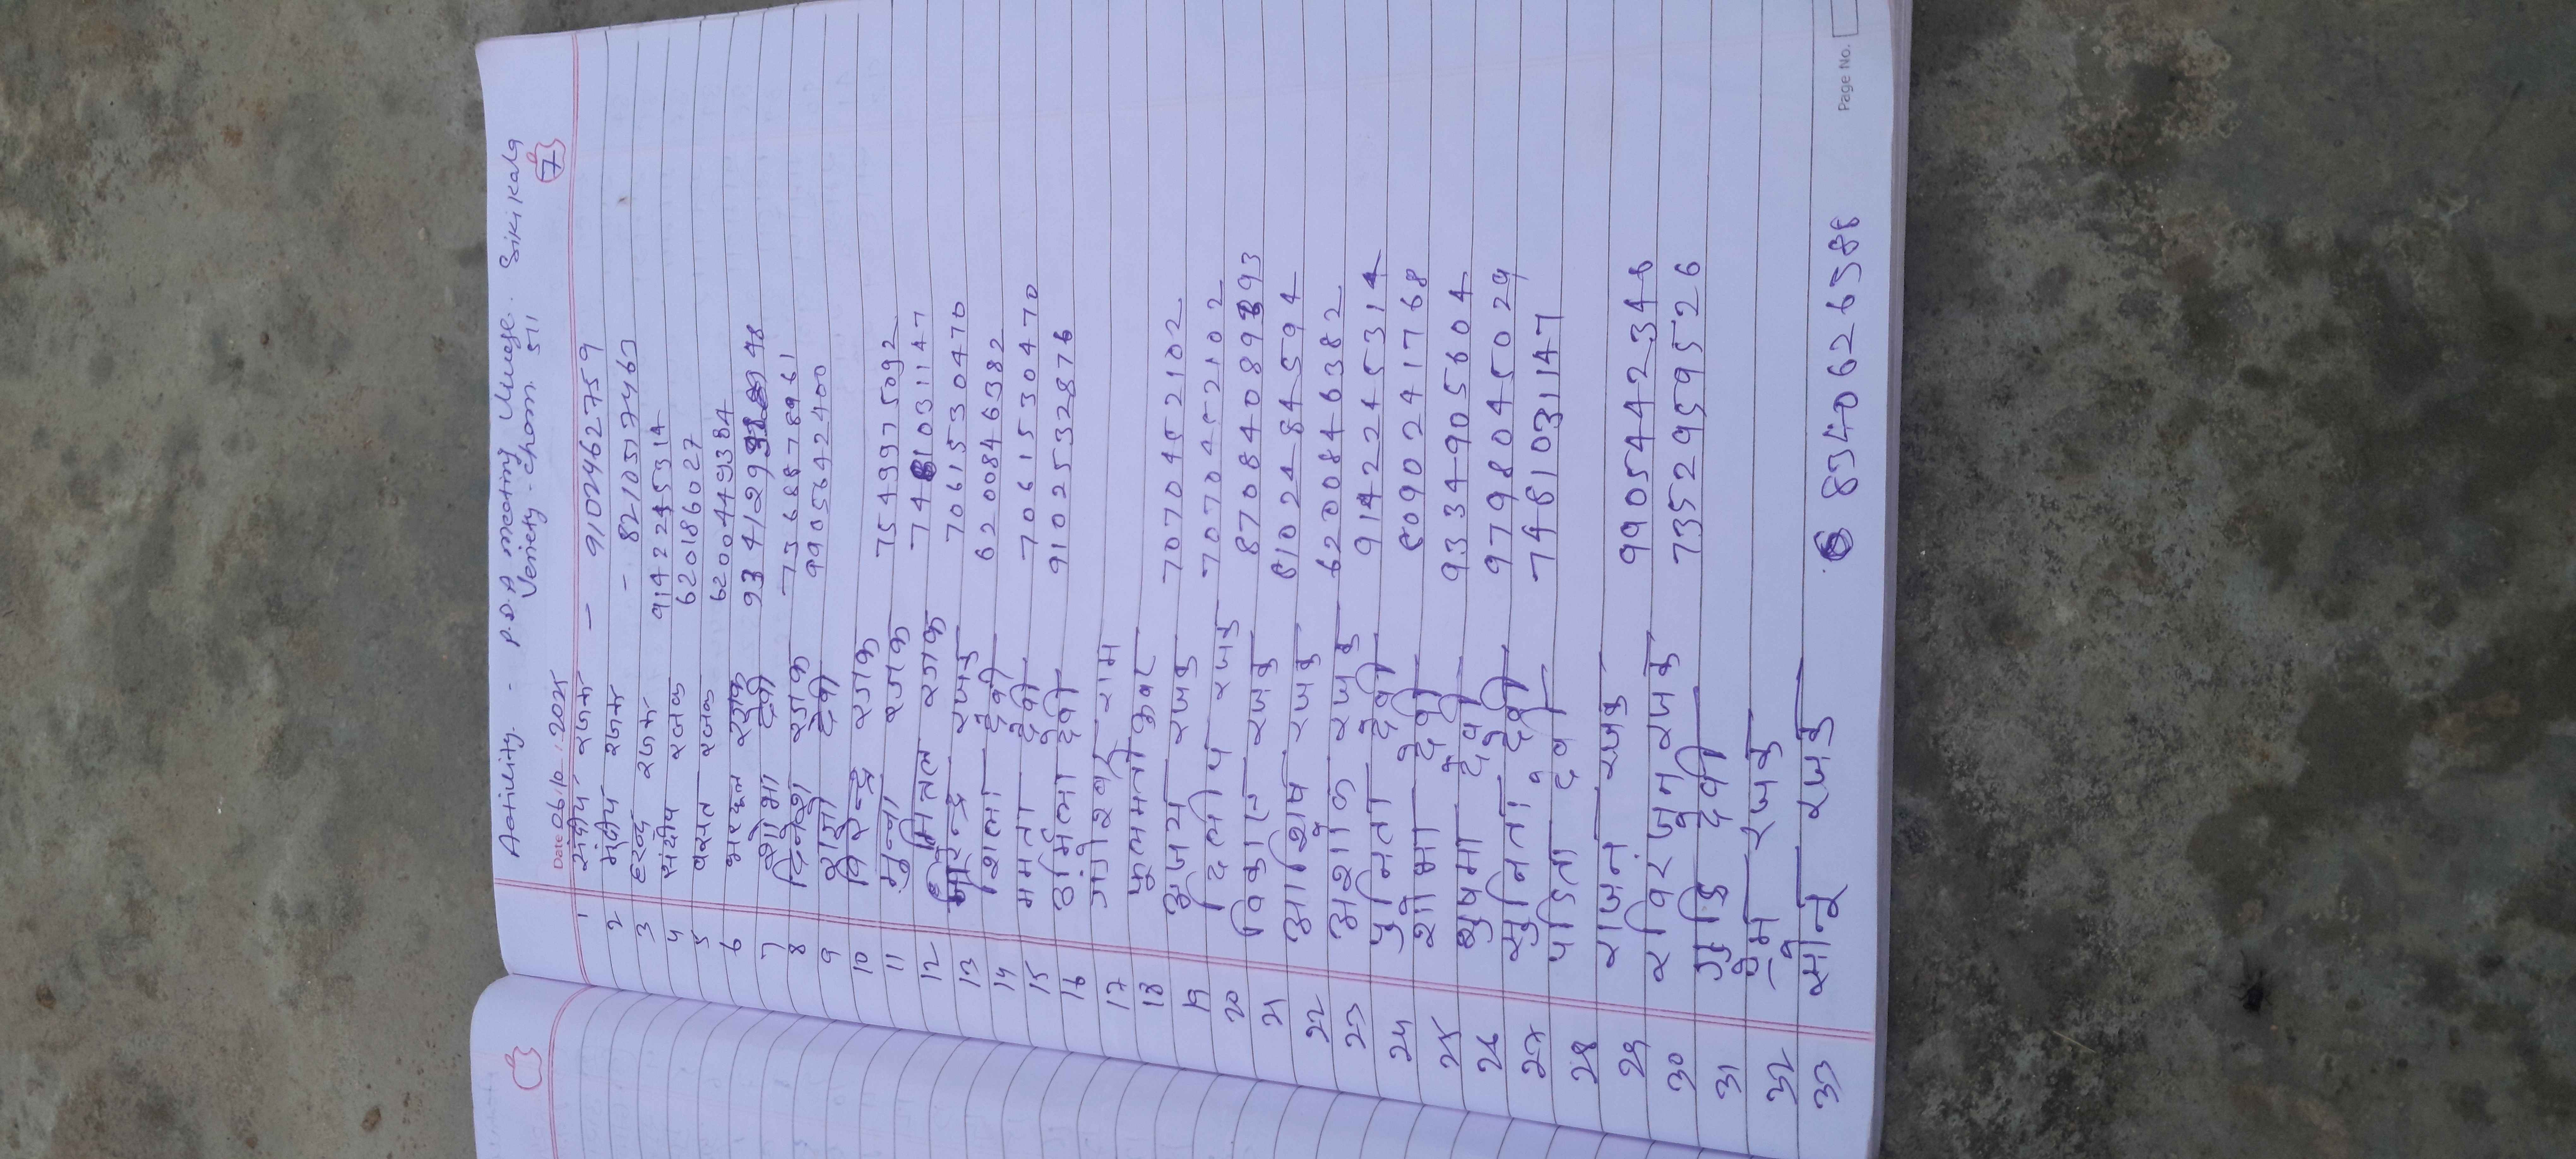 Activity. - P.D.A meeting Village. Sikikala
Veriety - Chara. 511
Date 06.10.2025
7
1 संदीप रजक - 9102462759
2 मंदीप रजक - 8210577463
3 रजक
4 संदीप रजक 9142245314
5 वसंत रजक 6201860 27
6 रजक 6200449384
7 शोभा देवी 93412993
8 दिनेश रजक 7368878961
9 देवी 9905642400
10 विरेन्द्र रजक
11 मुन्ना रजक 7549975092
12 रजक 7481031147
13 रजक 7061530470
14 शिला देवी 6200846382
15 ममता देवी 7061530470
16 उर्मिला देवी 9102532876
17 गणेश राम
18 फुलमती कुवर
19 अजय रजक 7070452102
20 दिलीप रजक 7070452102
21 विकास रजक
22 आशिष रजक 8102484594
23 अशोक रजक 6200846382
24 पुनिता देवी 9142245314
25 शोभा देवी 8090241768
26 सुषमा देवी 9334905604
27 सुनिता देवी 9798045029
28 देवी 7481031147
29 राजन रजक
30 रजक 9905442348
31 देवी 7352959526
32 प्रेम रजक
33 रजक 8340626588
Page No.